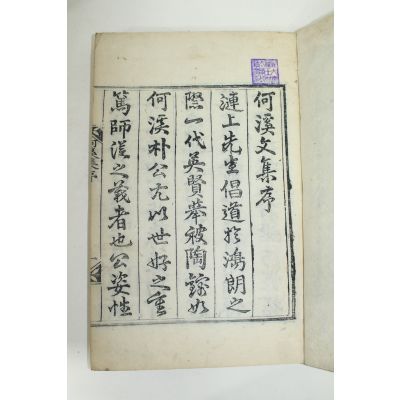 何溪文集序
漣上先生倡道於鴻朗之
際一代英賢莘被陶鎔如
何溪朴公尤以世好之重
篤師従之義者也公姿性
何溪集序